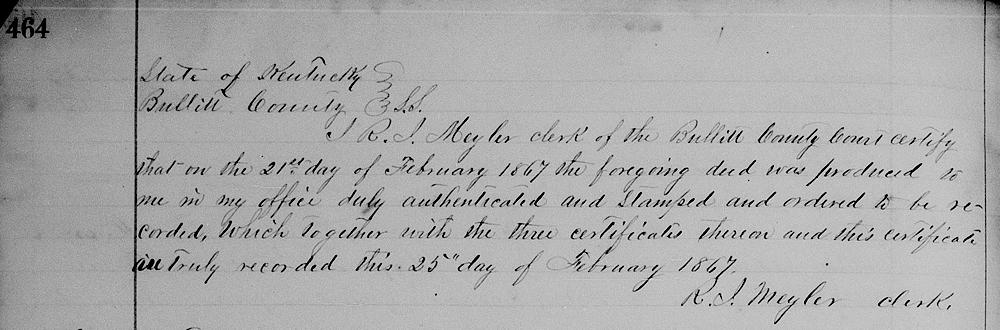 464
State of Kentucky
Bullitt County S.S.
I R. J. Meyler clerk of the Bullitt County Court certify
that on the 21st day of February 1867 the foregoing deed was produced to
me in my office duly authenticated and Stamped and ordered to be re-
corded, Which together with the three certificates thereon and this certificate
truly recorded this 25" day of February 1867.
R. J. Meyler clerk.